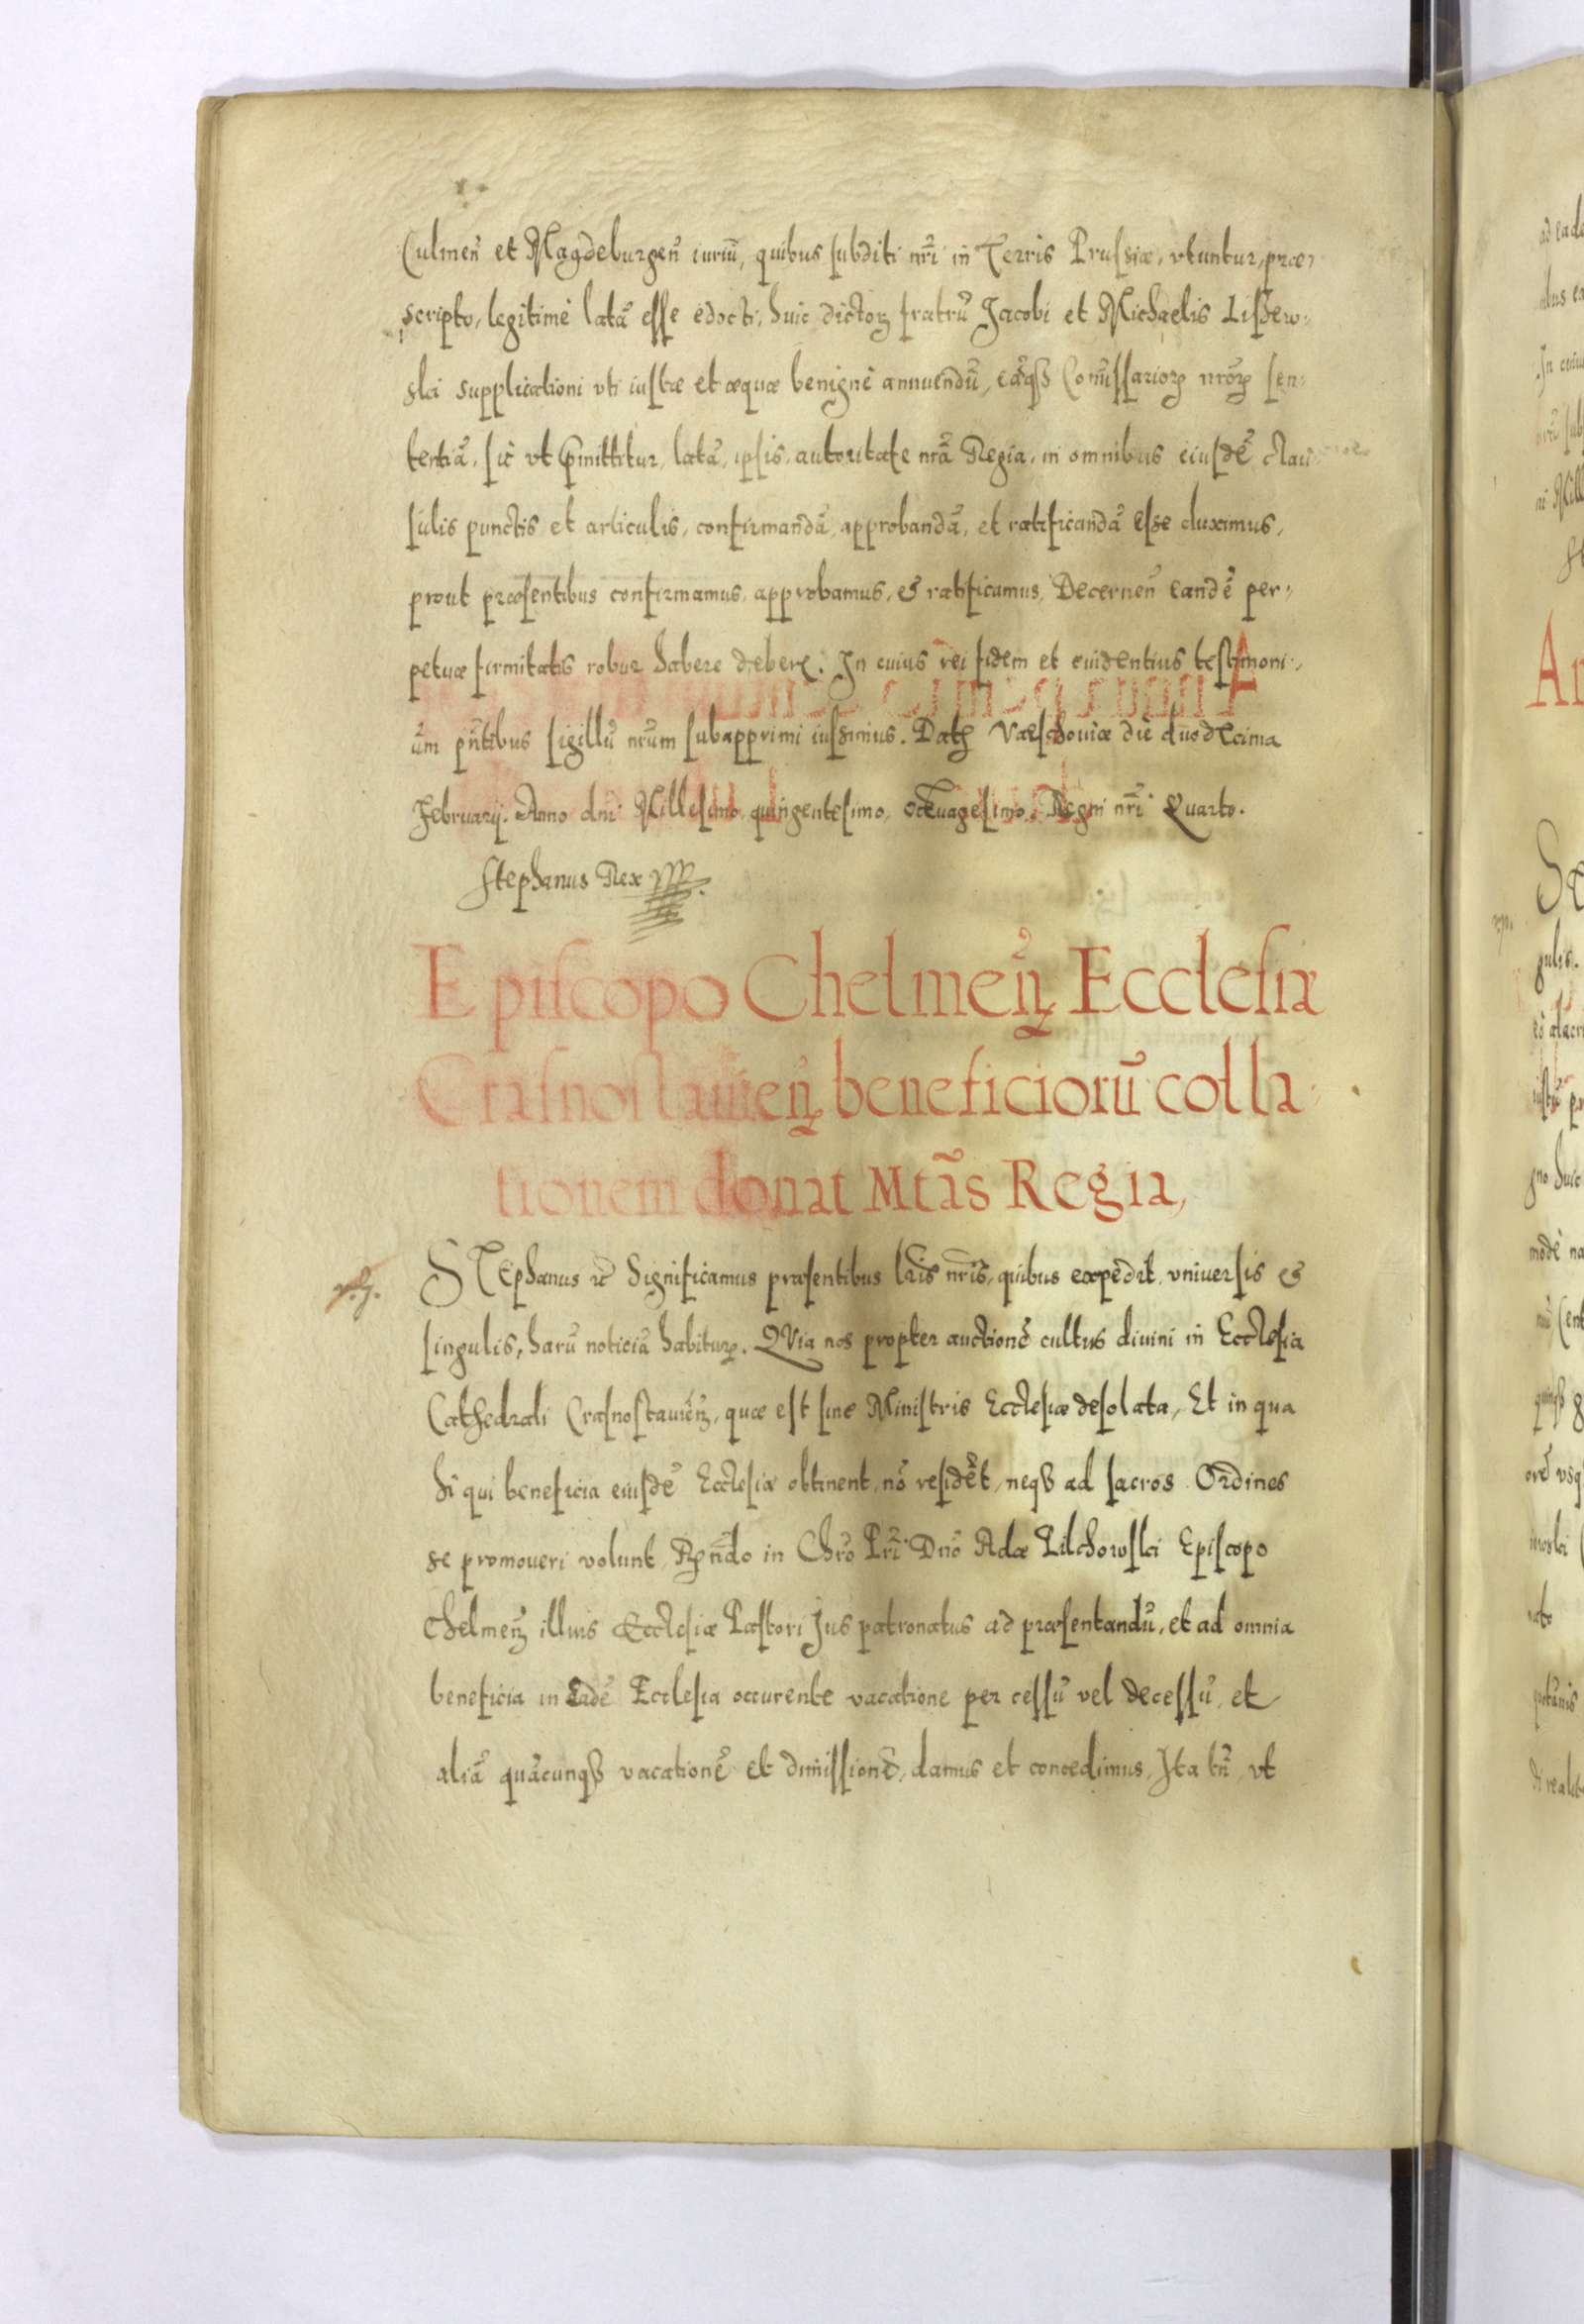 Culmeñ et Magdeburgeñ iuriũ, quibus subditi nr̃i in Terris Prussiæ, vtuntur, præ-
scripto, legitimè latã esse edocti, huic dictoꝝ fratrũ Jacobi et Michaelis Lisdew-
ski supplicationi vti iustæ et æquæ benignè annuendũ, eãqꝫ Com̃issarioꝝ nr̃oꝝ sen-
tentiã, sic vt p̃mittitur, latã, ipsis, autoritate nr̃a Regia, in omnibus eiusdẽ clau
sulis punctis et articulis, confirmandã, approbandã, et ratificandã esse duximus,
prout præsentibus confirmamus, approbamus, & ratificamus, Decerneñ eandẽ per-
petuæ firmitatis robur habere debere. In cuius rei fidem et euidentius testimoni-
um pñtibus sigillũ nr̃um subapprimi iussimus. Datꝫ Varschouiæ die duodecima
Februarij. Anno dñi Millesimo quingentesimo, octuagesimo, Regni nr̃i Quarto.
Stephanus Rex
Episcopo Chelmeñ Ecclesiæ
Crasnostauieñ beneficiorũ colla
tionem donat Mtãs Regia,
STephanus ꝛc̃ Significamus præsentibus lr̃is nr̃is, quibus expedit, vniuersis &
singulis, harũ noticiã habiturꝫ. QVia nos propter auctionẽ cultus diuini in Ecclesia
Cathedrali Crasnostauieñ, quæ est sine Ministris Ecclesiæ desolata, Et in qua
hi qui beneficia eiusdẽ Ecclesiæ obtinent, nõ residẽt, neqꝫ ad sacros Ordines
se promoueri volunt, Rñdo in Chr̃o Pr̃i Dño Adæ Pilchowski Episcopo
Chelmeñ illius Ecclesiæ Pastori Jus patronatus ad præsentandũ, et ad omnia
beneficia in Eadẽ Ecclesia occurente vacatione per cessũ vel decessũ, et
aliã quãcunqꝫ vacationẽ et dimissionẽ, damus et concedimus, Ita tñ, vt